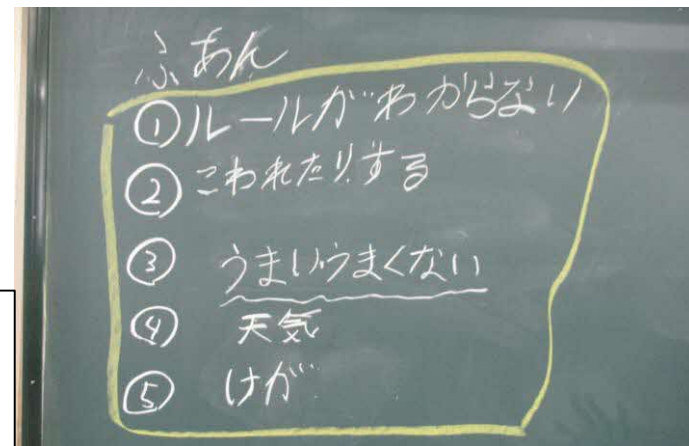 ふあん
①ルールがわからない
②こわれたりする
③うまいうまくない
④天気
⑤けが